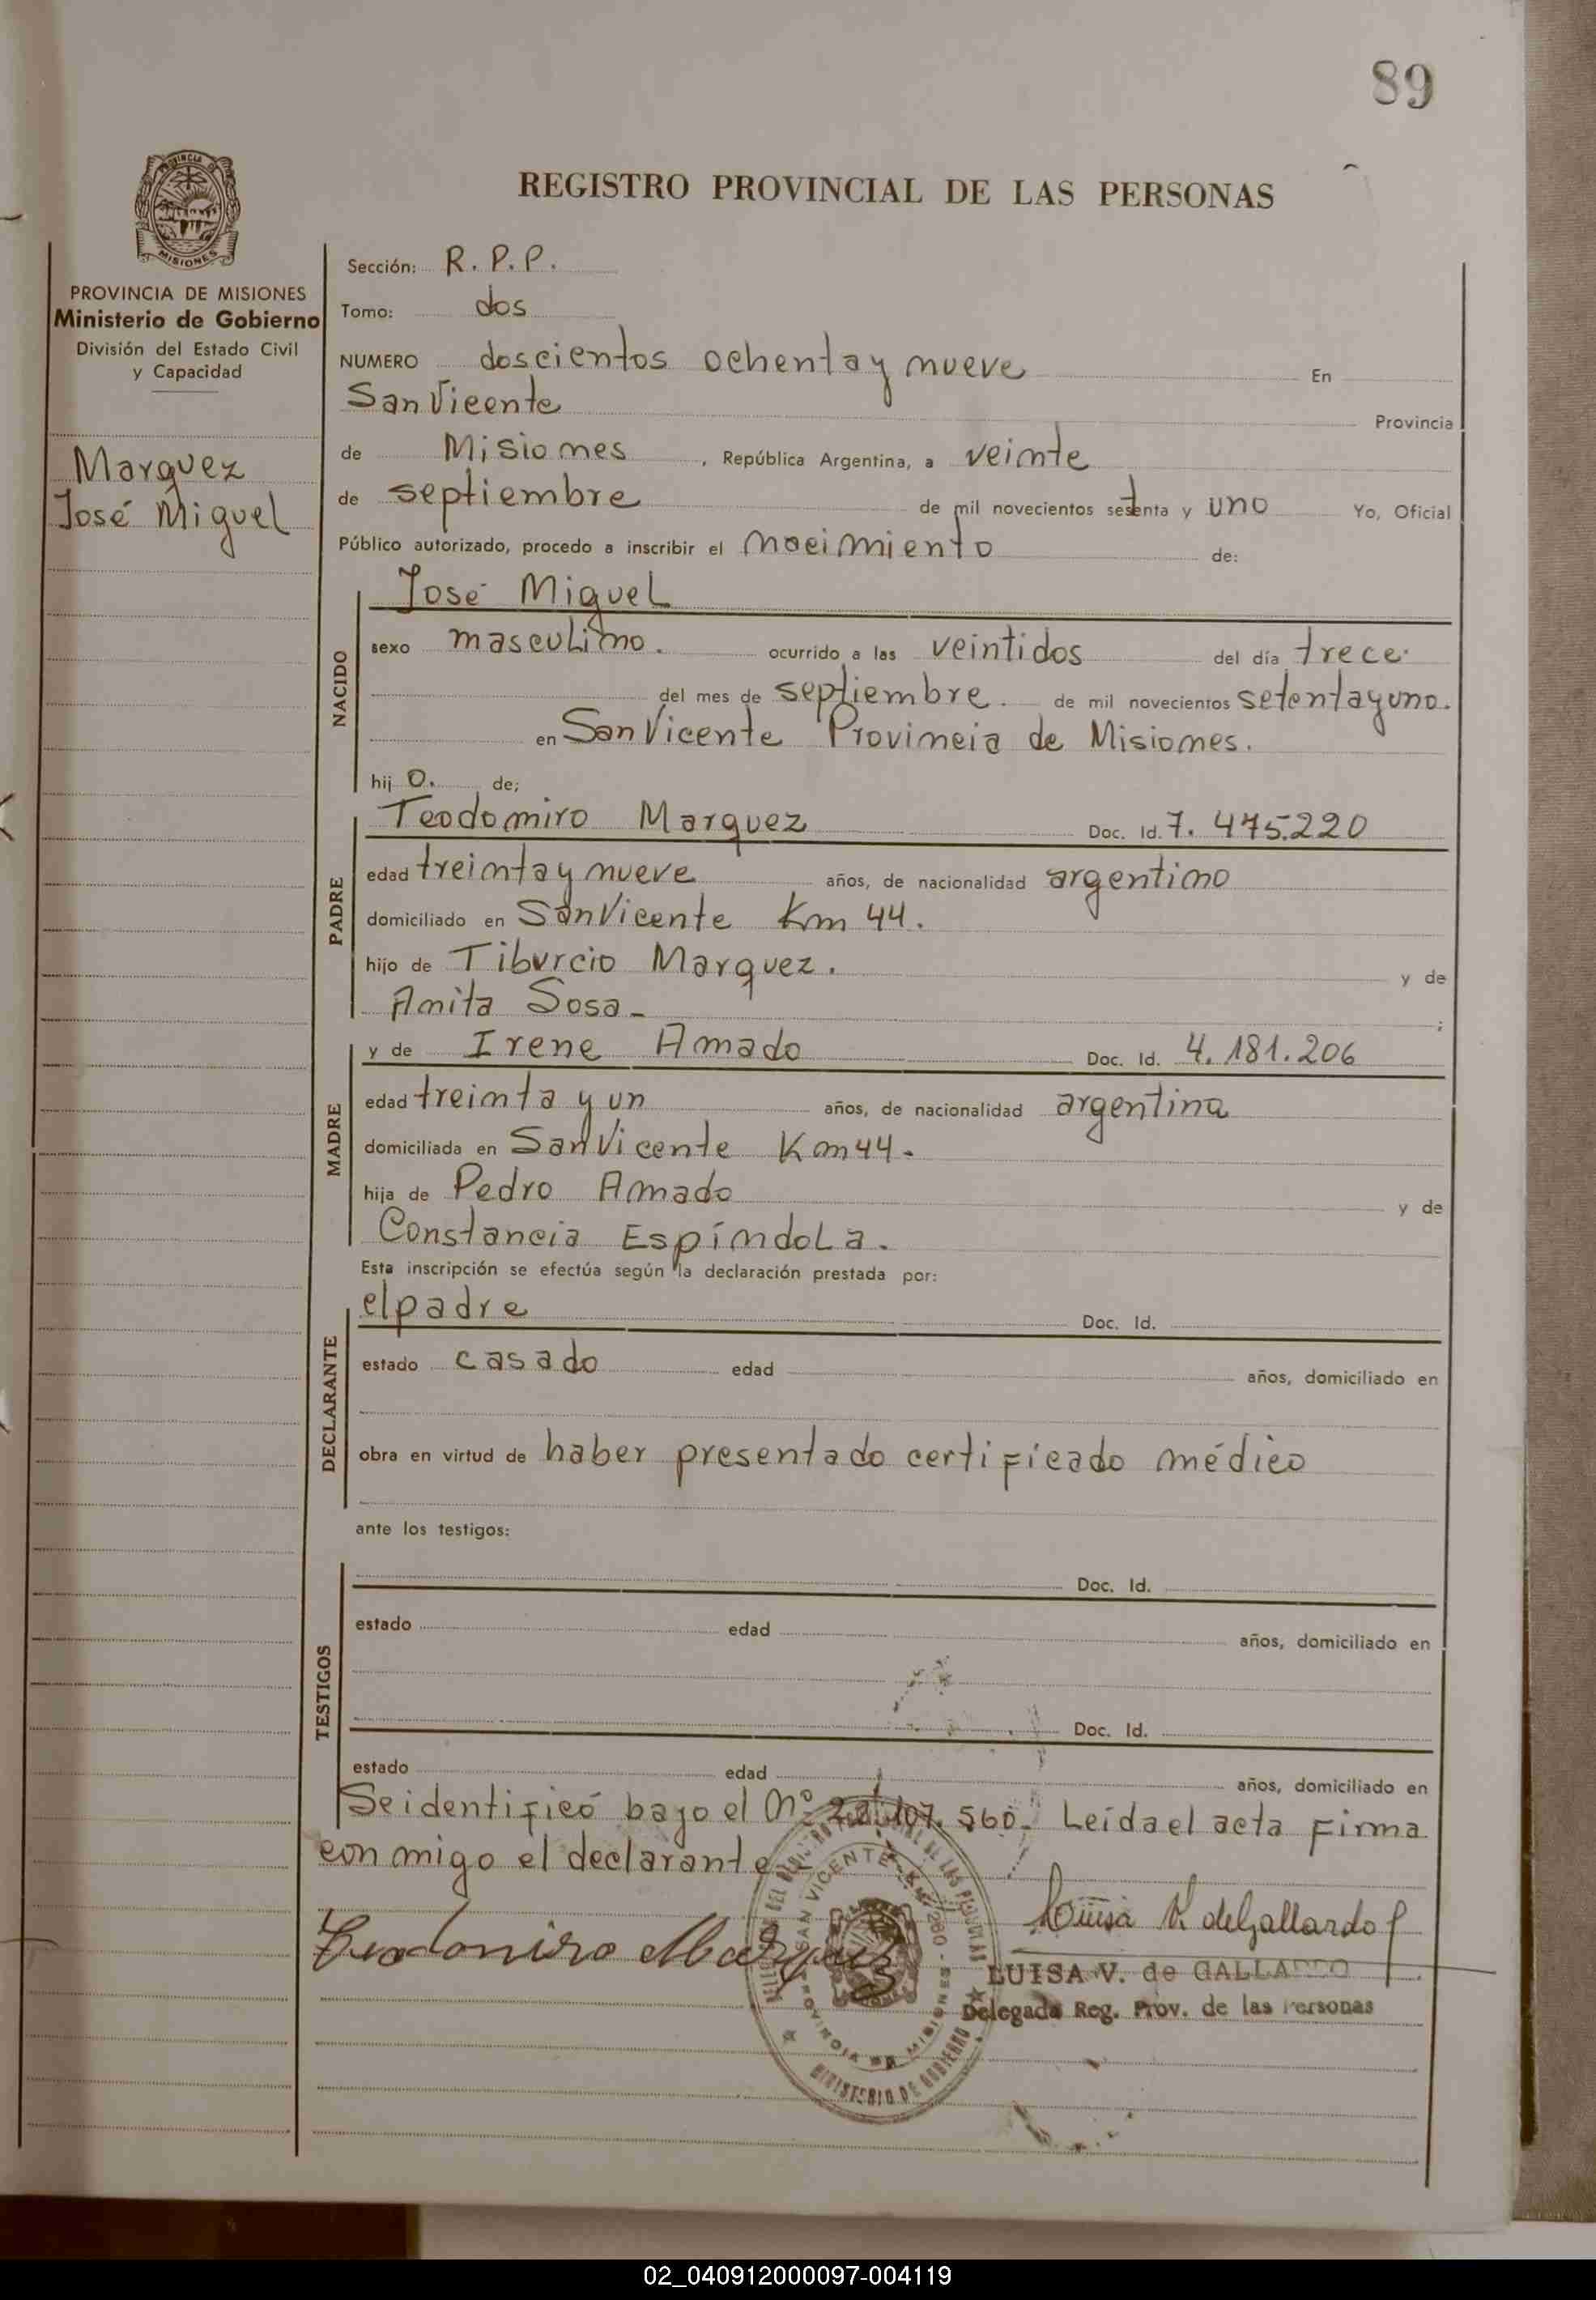 89
REGISTRO PROVINCIAL DE LAS PERSONAS
PROVINCIA DE
MISIONES
PROVINCIA DE MISIONES
Ministerio de Gobierno
División del Estado Civil
y Capacidad
Marquez
José Miguel
Sección: R. P. P.
Tomo: dos
NUMERO doscientos ochenta y nueve En
San Vicente Provincia
de Misiones , República Argentina, a veinte
de septiembre de mil novecientos setenta y uno Yo, Oficial
Público autorizado, procedo a inscribir el nacimiento de:
NACIDO
José Miguel
sexo masculino. ocurrido a las veintidos del día trece
del mes de septiembre. de mil novecientos setenta y uno.
en San Vicente Provincia de Misiones.
hij o. de;
PADRE
Teodomiro Marquez Doc. Id. 7. 475.220
edad treinta y nueve años, de nacionalidad argentino
domiciliado en San Vicente Km 44.
hijo de Tiburcio Marquez. y de
Anita Sosa ;
MADRE
y de Irene Amado Doc. Id. 4. 181. 206
edad treinta y un años, de nacionalidad argentina
domiciliada en San Vicente Km 44.
hija de Pedro Amado y de
Constancia Espíndola.
Esta inscripción se efectúa según la declaración prestada por:
DECLARANTE
el padre Doc. Id.
estado casado edad años, domiciliado en
obra en virtud de haber presentado certificado médico
ante los testigos:
TESTIGOS
Doc. Id.
estado edad años, domiciliado en
Doc. Id.
estado edad años, domiciliado en
Se identificó bajo el Nº 22.107.560. Leída el acta firma
conmigo el declarante
Teodomiro Marquez
Luisa V. de Gallardo
LUISA V. de GALLARDO
Delegada Reg. Prov. de las Personas
SAN VICENTE
PROVINCIA DE MISIONES
MINISTERIO DE GOBIERNO
02_040912000097-004119